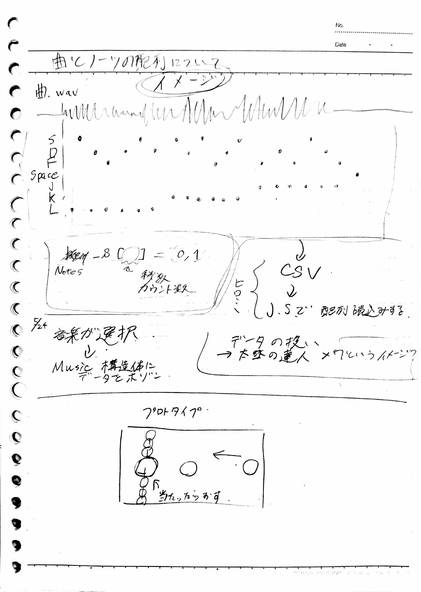 No.
Date
曲とノーツの配列について
イメージ
曲.wav
S
D
F
Space
J
K
L
_S[ ] = 0,1
Notes
秒数
カウント数
CSV
↓
J.Sで 配列読込みする.
5/24
音楽が選択
↓
Music 構造体に
データをホゾン
データの扱い
→太鼓の達人 ×7というイメージ?
プロトタイプ
←
↑
当たったらかす.